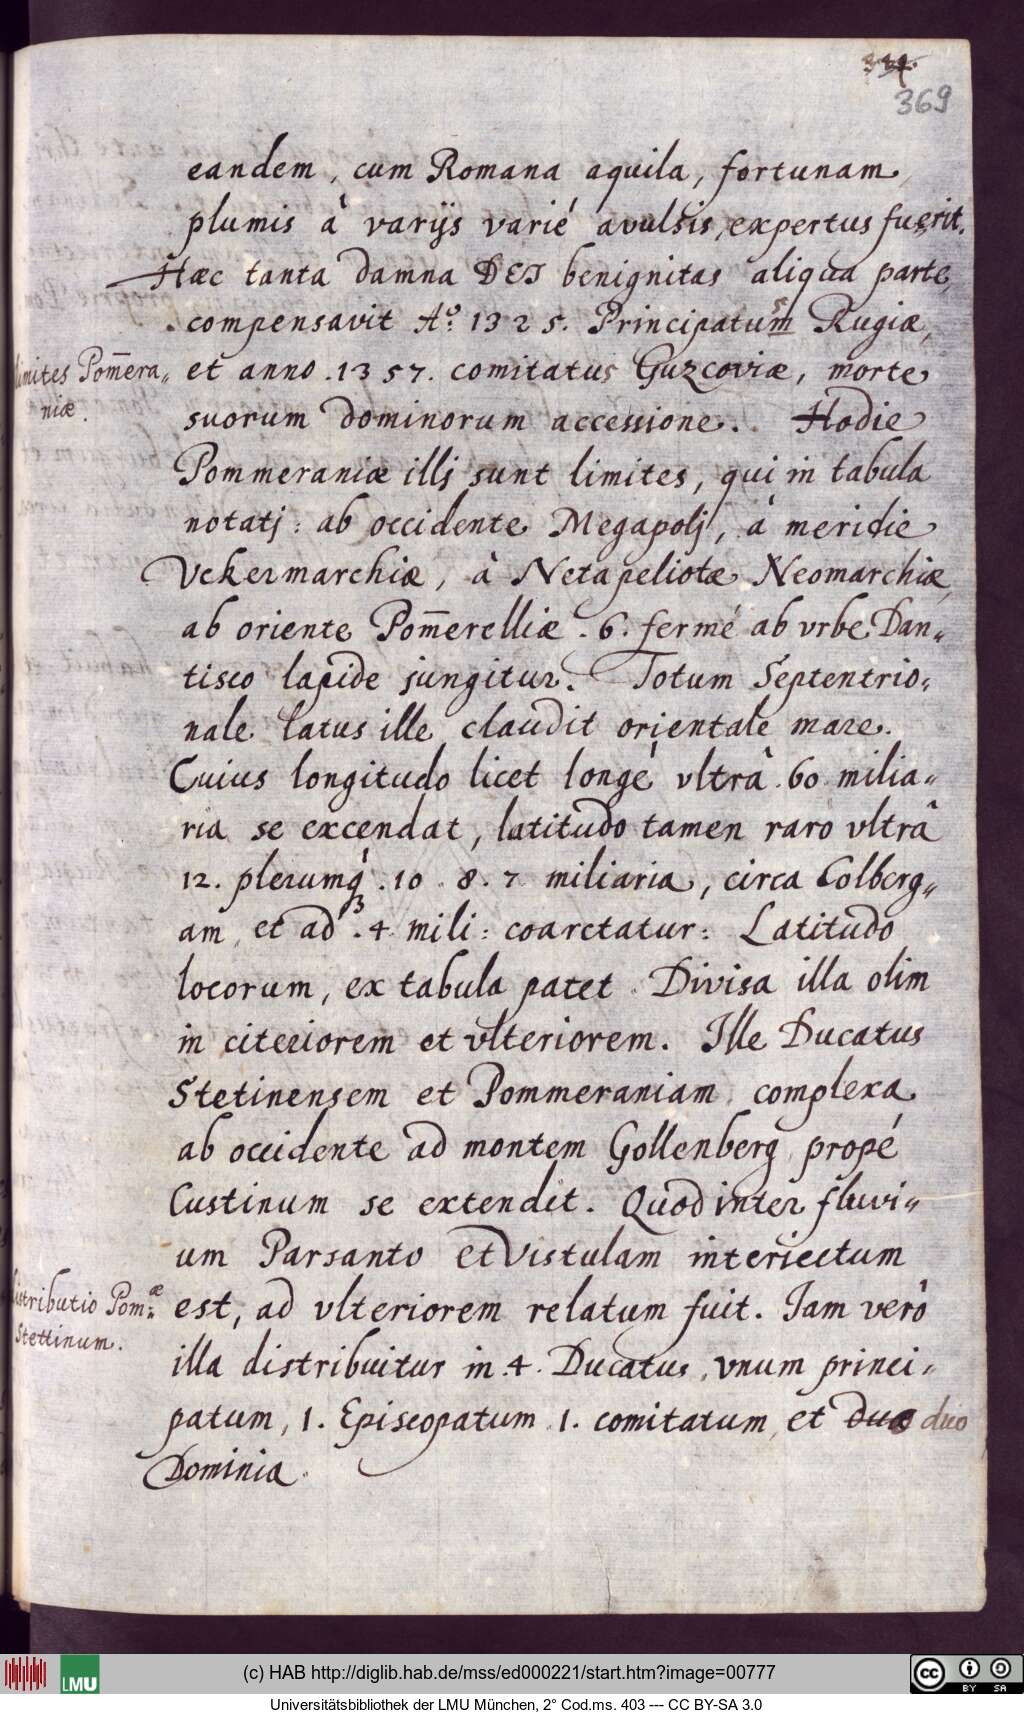 369
eandem, cum Romana aquila, fortunam
plumis à varijs varié avulsis, expertus fuerit.
Hæc tanta damna DEI benignitas aliqua parte,
compensavit Aº: 1325. Principatus Rugiæ,
et anno .1357. comitatus Guzcoviæ, morte
suorum dominorum accessione. Hodie
Pommeraniæ illj sunt limites, qui in tabula
notatj: ab occidente Megapolj, à meridie
Vckermarchiæ, à Netapeliotæ Neomarchiæ,
ab oriente Pom̄erelliæ .6. fermé ab vrbe Dan„
tisco lapide jungitur. Totum Septentrio„
nale latus ille claudit orientale mare.
Cuius longitudo licet longé vltrâ .60 milia„
ria se excendat, latitudo tamen raro vltrâ
12. plerumq́ .10 .8. 7 miliaria, circa Colberg„
am et ad 3 .4 mili: coarctatur: Latitudo
locorum, ex tabula patet. Divisa illa olim
in citeriorem et vlteriorem. Ille Ducatus
Stetinensem et Pommeraniam complexa
ab occidente ad montem Gollenberg propé
Custinum se extendit. Quod inter fluvi„
um Parsanto et Vistulam interiectum
est, ad vlteriorem relatum fuit. Iam verò
illa distribuitur in .4. Ducatus, vnum princi„
patum, 1. Episcopatum 1. comitatum, et duæ duo
Dominia.
limites Pom̄era„
niæ.
distributio Pom:æ
Stettinum.
LMU
(c) HAB http://diglib.hab.de/mss/ed000221/start.htm?image=00777
Universitätsbibliothek der LMU München, 2° Cod.ms. 403 --- CC BY-SA 3.0
cc BY SA